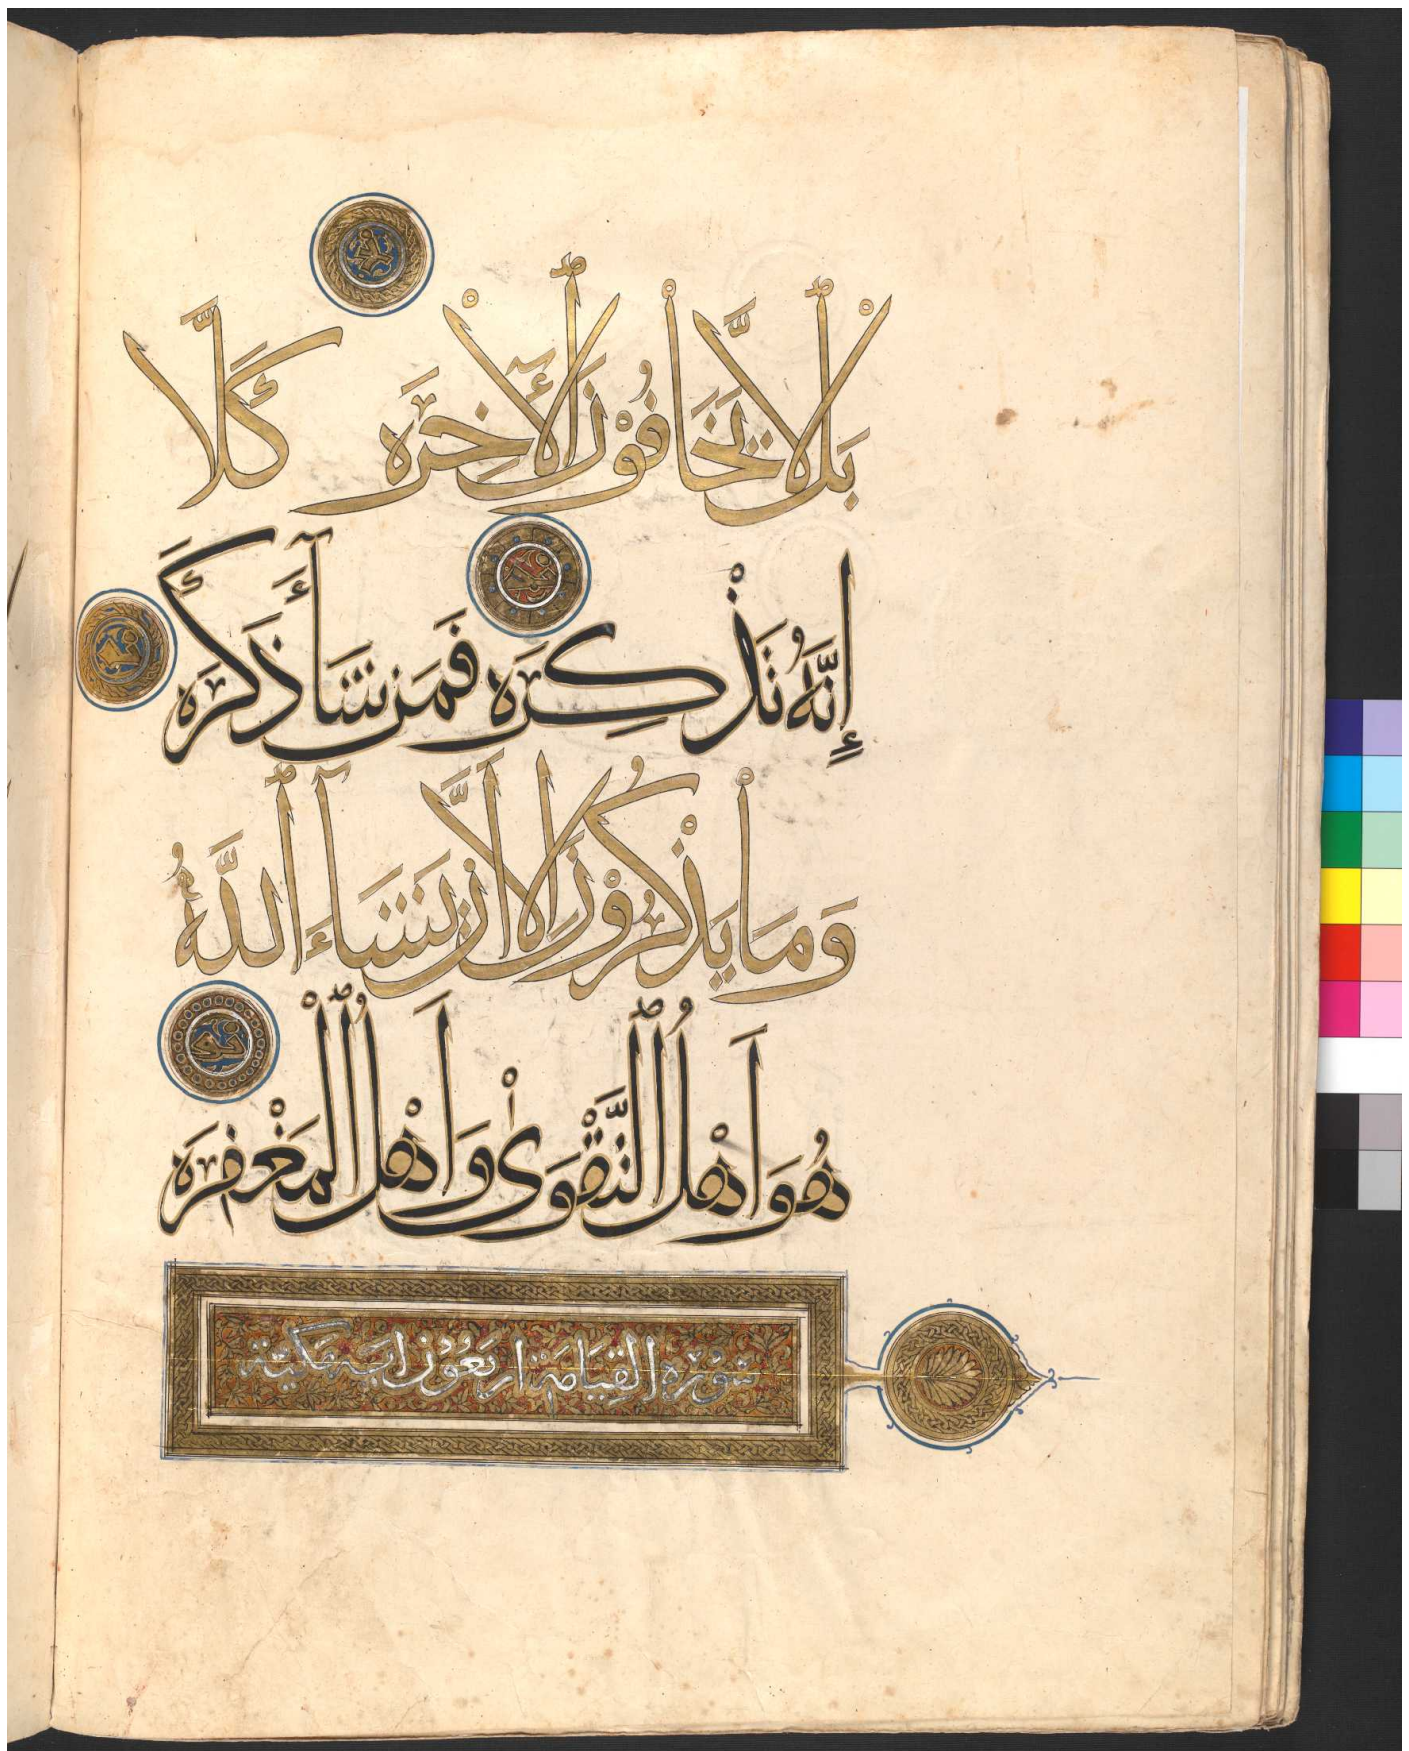 بَلْ لَّا يَخَافُوْنَ ٱلْأٓخِرَه كَلَّا
إِنَّهُ تَذْكِرَه فَمَن شَآءَ ذَكَرَه
وَمَا يَذْكُرُوْنَ إِلَّا أَن يَشَآءَ ٱللَّهُ
هُوَ أَهْلُ ٱلتَّقْوَىٰ وَأَهْلُ ٱلْمَغْفِرَه
سورة القيامة اربعون اية مكية